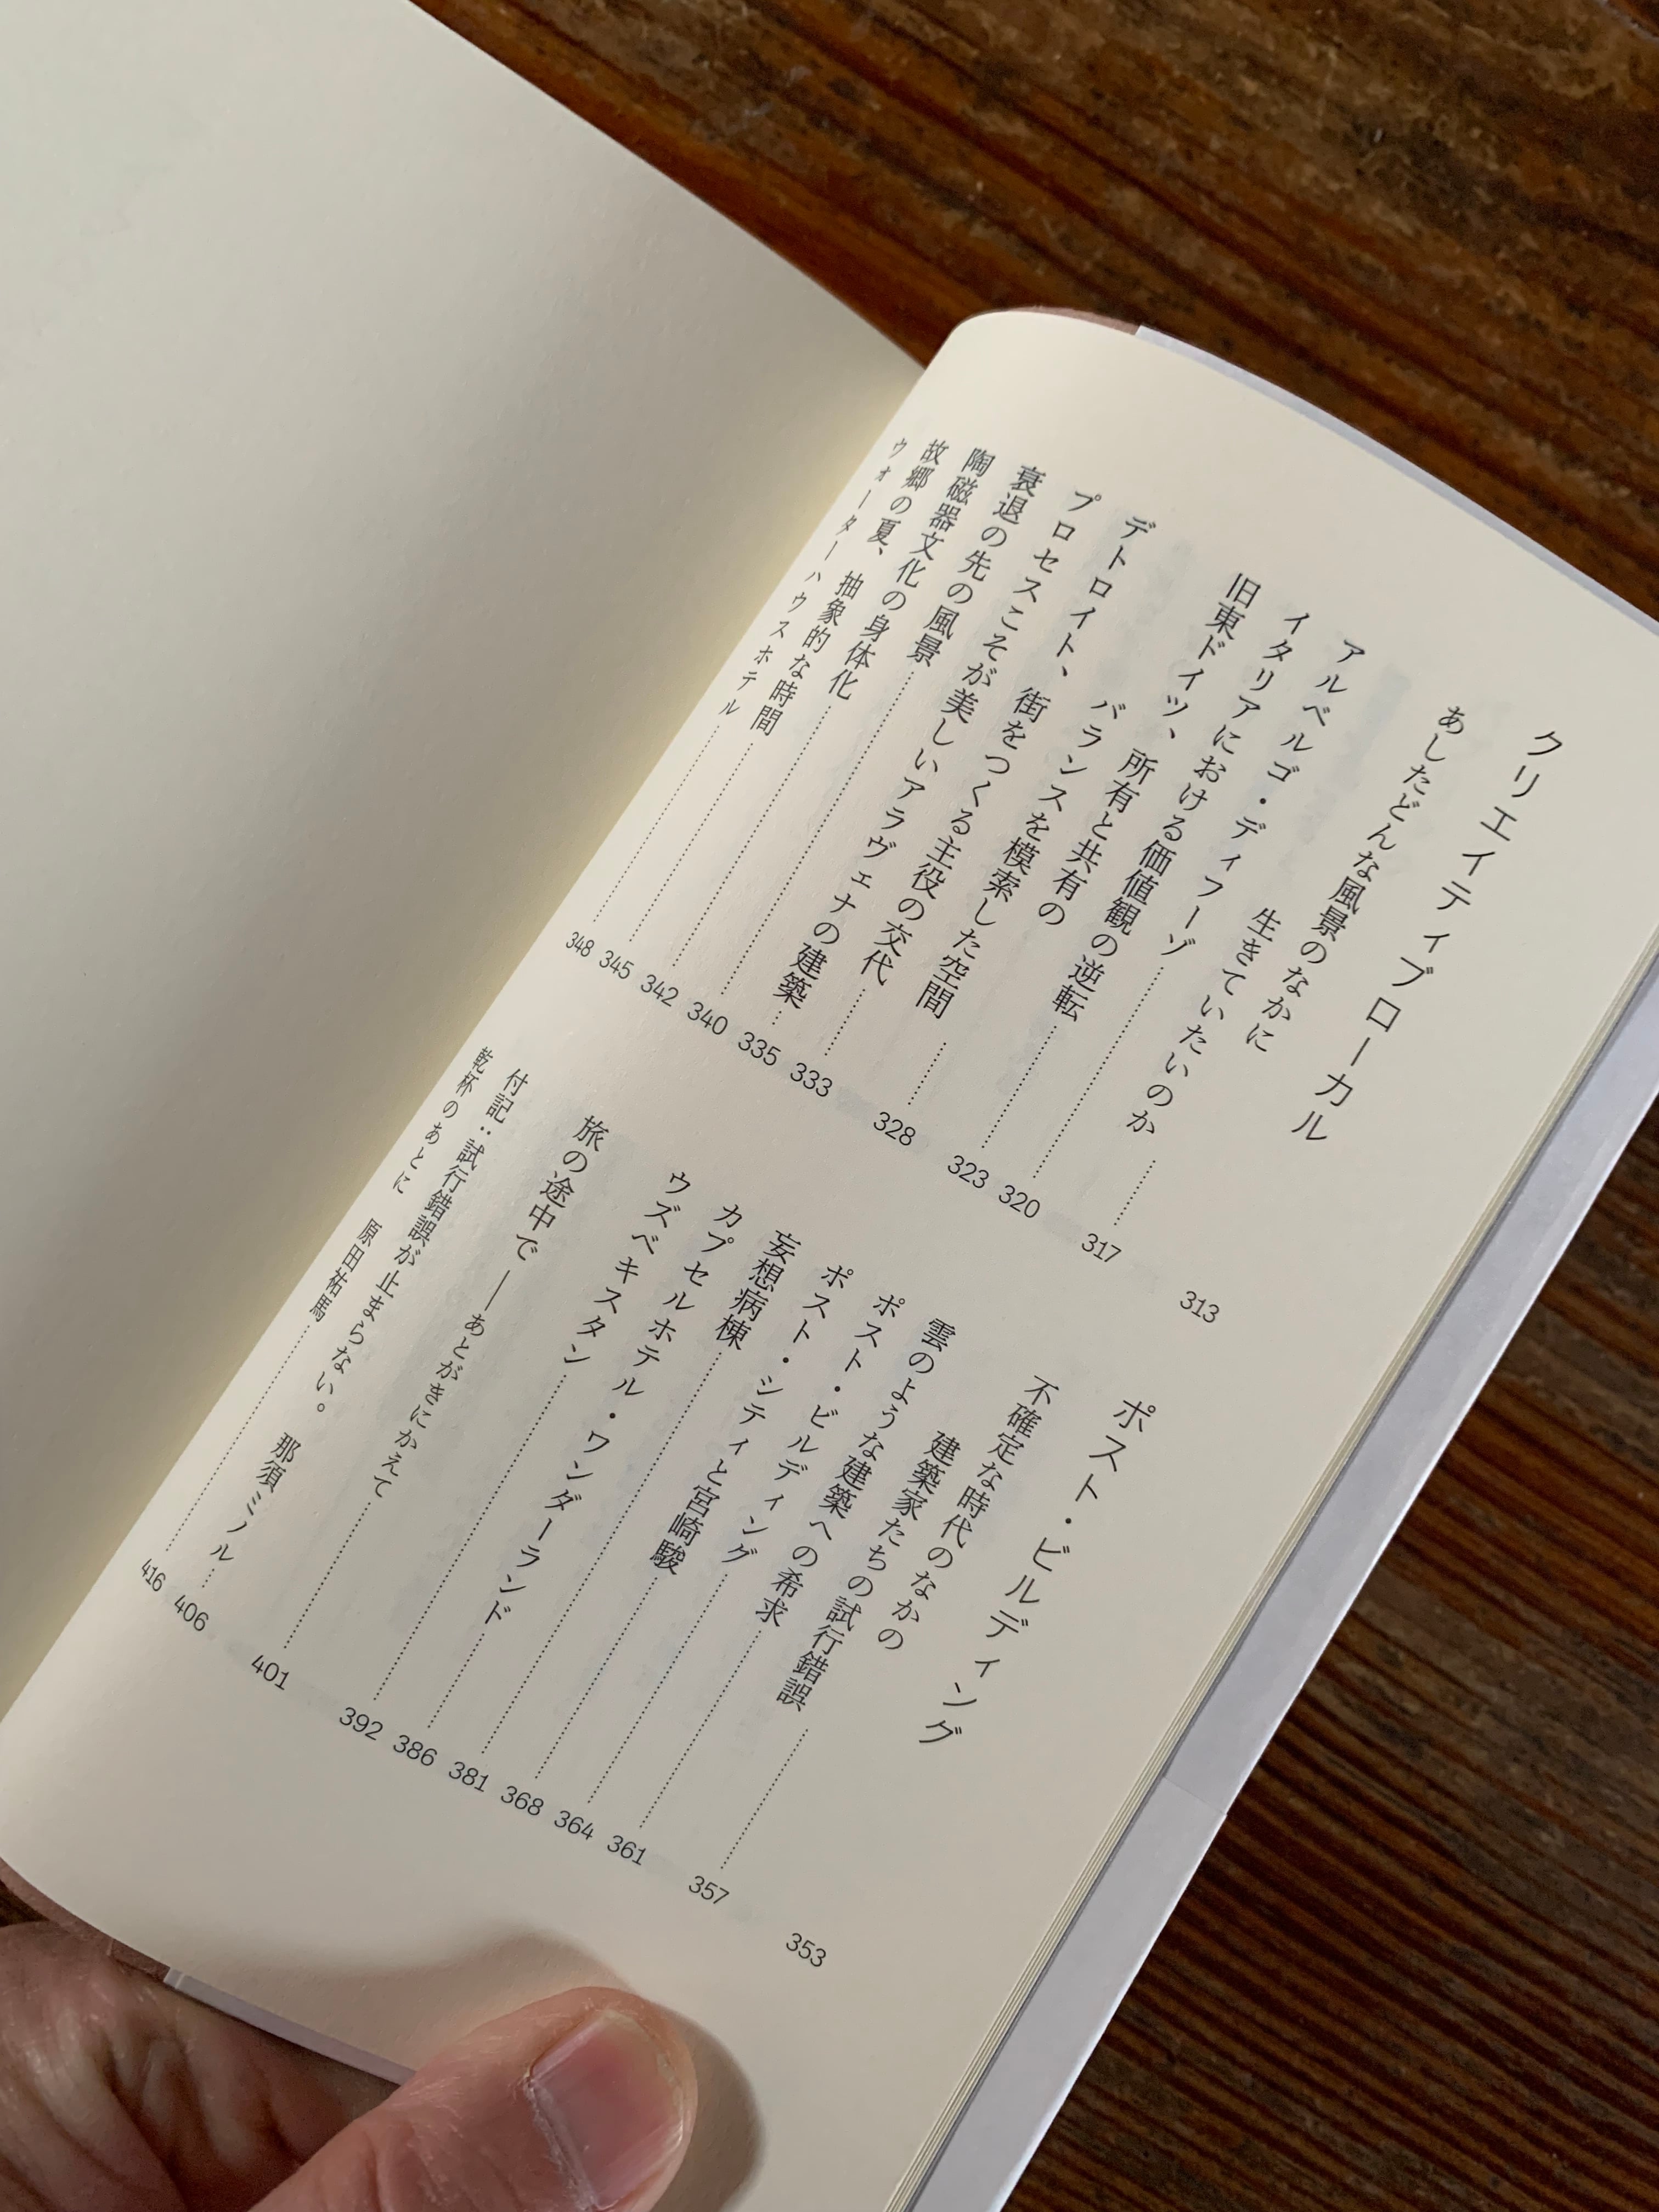 クリエイティブローカル 313
あしたどんな風景のなかに
生きていたいのか …… 317
アルベルゴ・ディフーゾ …… 320
イタリアにおける価値観の逆転 …… 323
旧東ドイツ、所有と共有の
バランスを模索した空間 …… 328
デトロイト、街をつくる主役の交代 …… 333
プロセスこそが美しいアラヴェナの建築 … 335
衰退の先の風景 …… 340
陶磁器文化の身体化 …… 342
故郷の夏、抽象的な時間 …… 345
ウォーターハウスホテル …… 348
ポスト・ビルディング 353
不確定な時代のなかの
建築家たちの試行錯誤 …… 357
雲のような建築への希求 …… 361
ポスト・ビルディング …… 364
ポスト・シティと宮崎駿 …… 368
妄想病棟 …… 381
カプセルホテル・ワンダーランド …… 386
ウズベキスタン …… 392
旅の途中で ——あとがきにかえて …… 401
付記：試行錯誤が止まらない。 那須ミノル … 406
乾杯のあとに 原田祐馬 …… 416